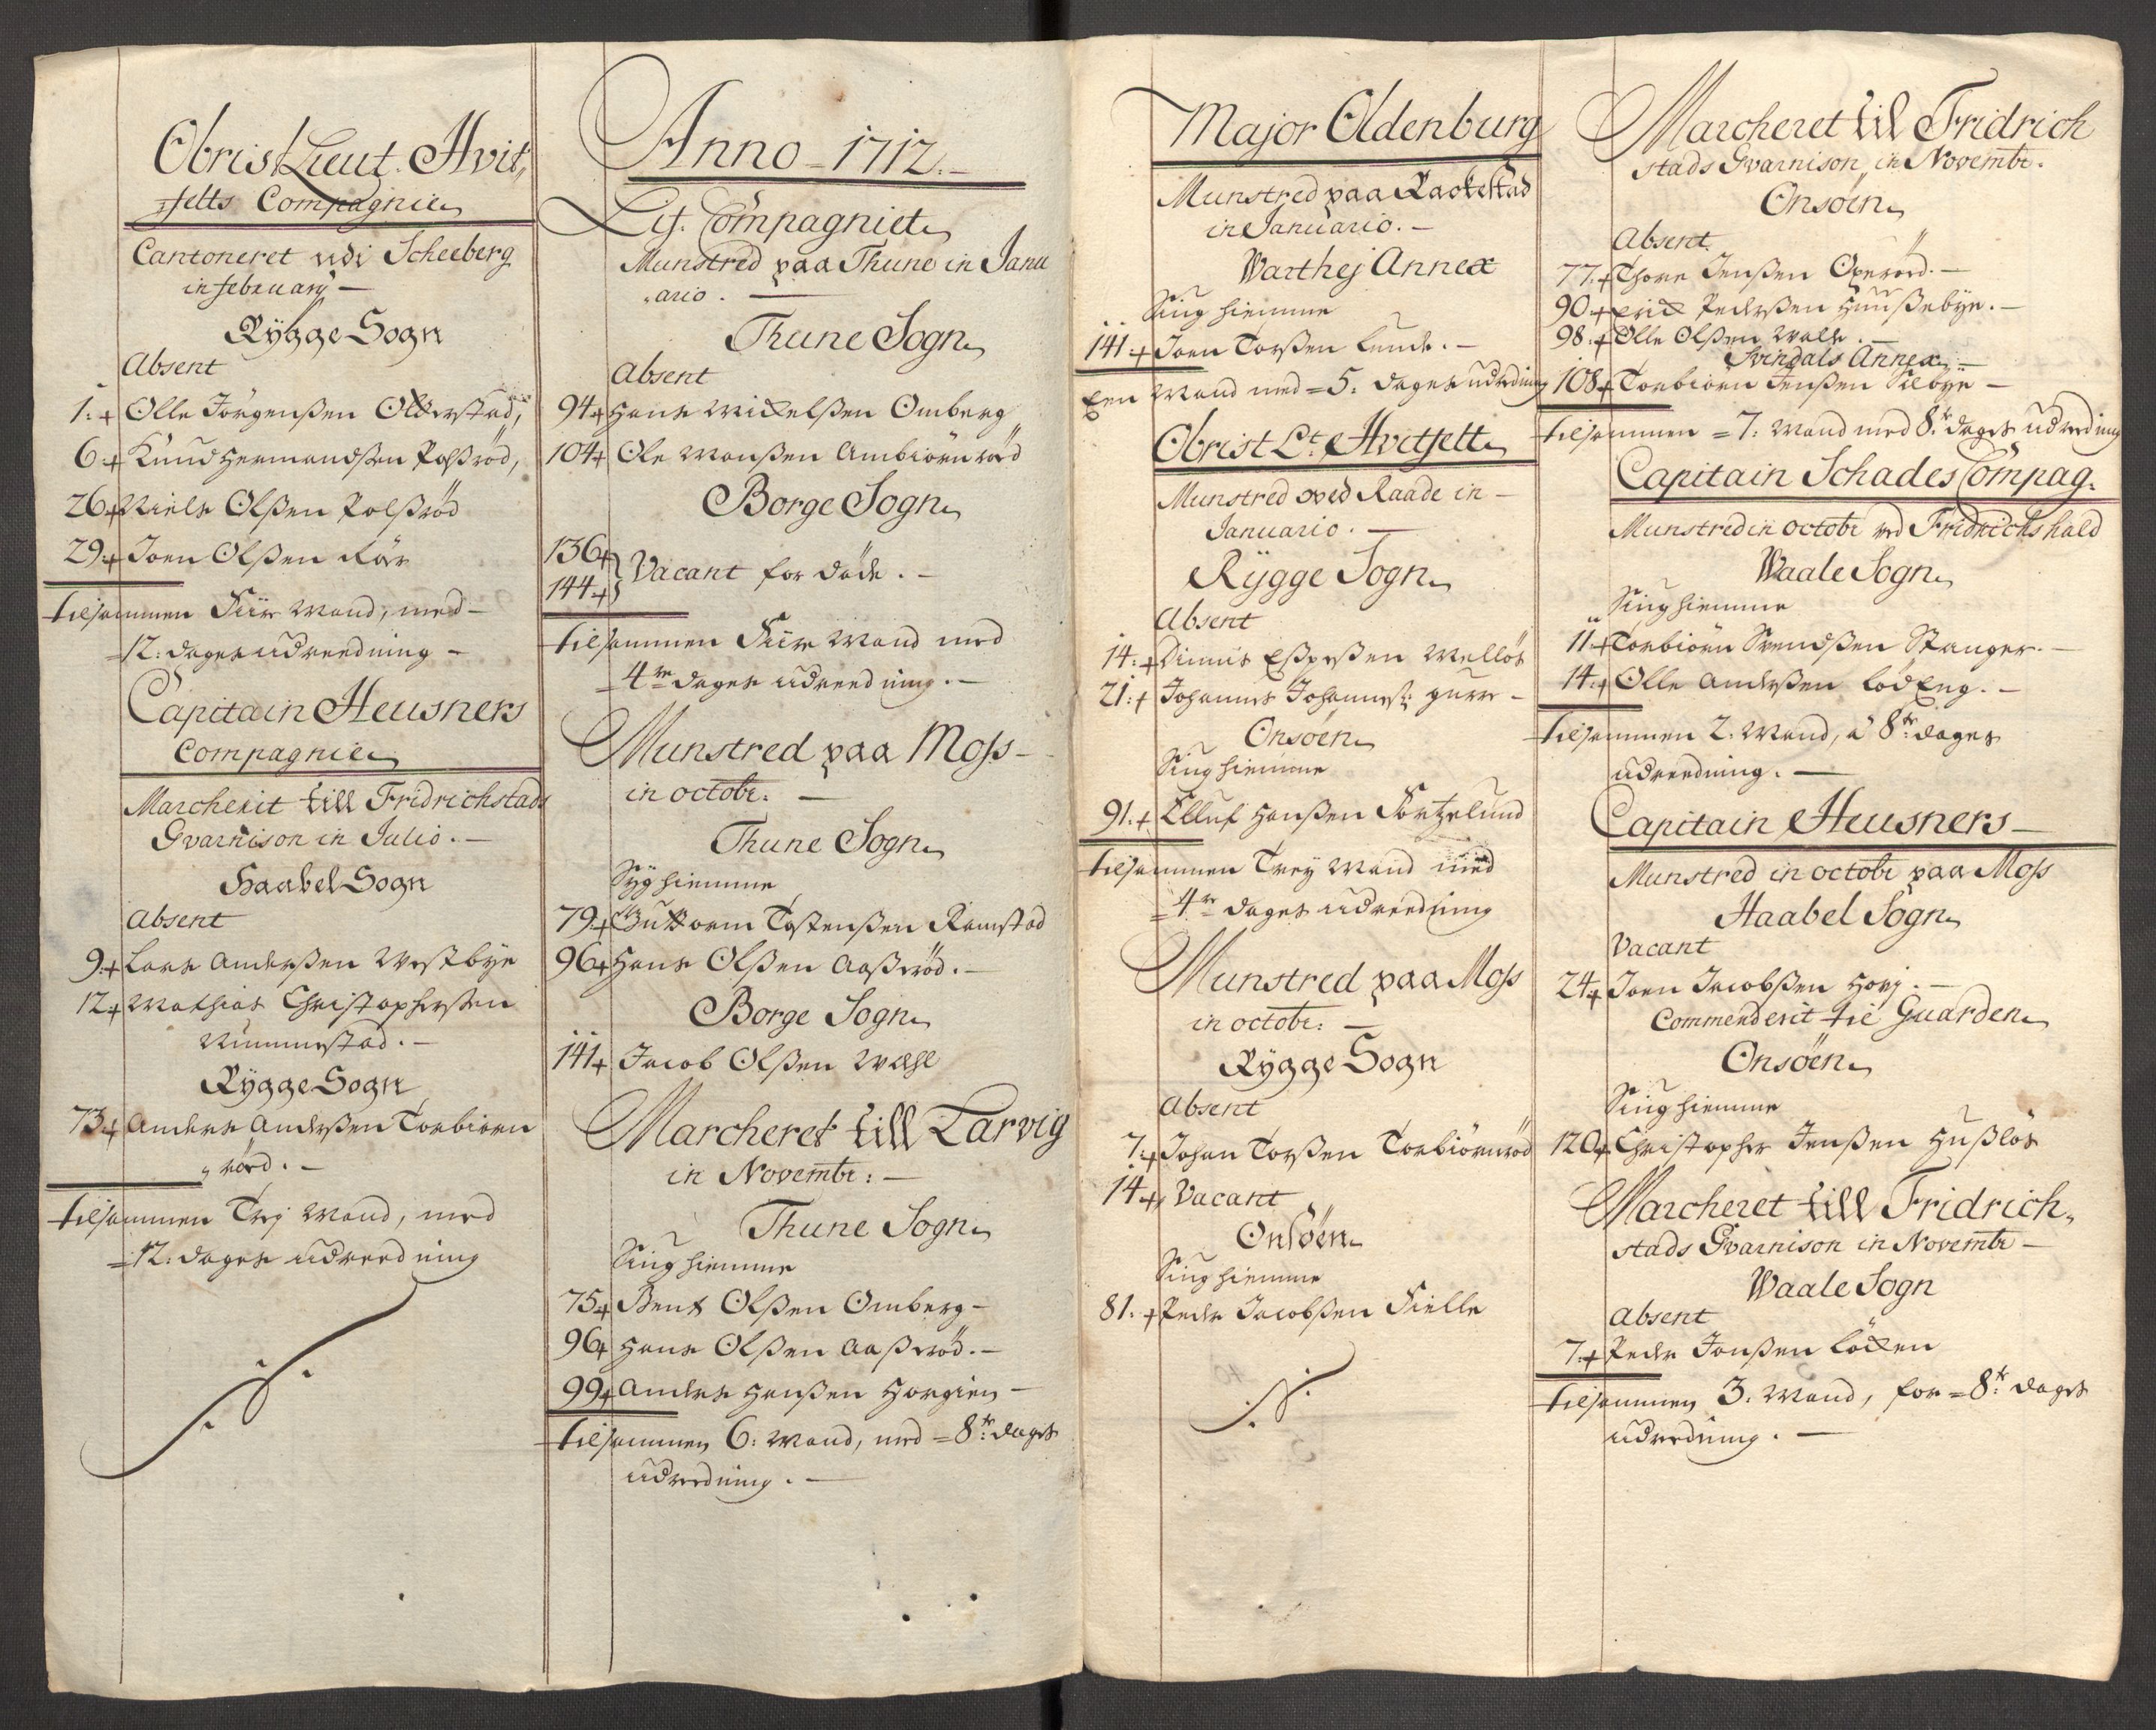 Obrist Lieut. Hvit,
felts Compagnie
Cantoneret udi Scheeberg
in february —
Rÿgge Sogn
Absent
1:+ Olle Jörgenßen Olkerstad,
6+ Knud Hermandßen Polßröd,
26+ Niels Olßen Polßröd
29+ Joen Olßen Kör
tilsammen Fiire Mand, med —
=12: dages udreedning —
Capitain Heusners
Compagnie
Marcherit till Fridrichstads
Gvarnison in Julio. —
Haabel Sogn
Absent
9+ Lars Anderßen Westbÿe
12+ Mathias Christopherßen
Rimmestad. —
Rÿgge Sogn
73+ Anders Anderßen Torbiørn
„röd. —
tilsammen Trej Mand, med
=12: dages udreedning
Anno 1712. —
Lif. Compagniet
Munstred paa Thune in Janu
„ario. —
Thune Sogn
Absent
94+ Hans Mickelßen Omberg
104+ Ole Monßen Ambiørnröd
Borge Sogn
136+
144+ } Vacant for döde. —
tilsammen Fiire Mand med
=4re dages udreedning. —
Munstred paa Moss —
in octobr: —
Thune Sogn
Sÿg hiemme
79+ Guttorm Tostenßen Ramstad
96+ Hans Olßen Aaßeröd. —
Borge Sogn
141+ Jacob Olßen Wæhl
Marcheret till Larvig
in Novembr: —
Thune Sogn
Siug hiemme
75+ Bent Olßen Omberg —
96+ Hans Olßen Aaßeröd. —
99+ Anders Hanßen Horgien —
tilsammen 6: Mand, med =8te dages
udreedning. —
Major Oldenburg
Munstred paa Rackestad
in Januario. —
Warthej Annex
Siug hiemme
141+ Joen Torßen Lunde. —
Een Mand med =5: dages udreedning
Obrist Lt. Hvitfelt
Munstred ved Raade in —
Januario. —
Rÿgge Sogn
Absent
14:+ Dinnis Eßpeßen Wellös
21:+ Johannes Johannesß: gurre —
Onsöen
Siug hiemme
91:+ Elluf Hanßen Fortzelund
tilsammen Treÿ Mand med
=4re dages udreedning
Munstred paa Moss
in octobr: —
Rÿgge Sogn
Absent
7:+ Johan Torßen Torbiørnröd
14+ Vacant
Onsöen
Siug hiemme
81:+ Peder Jacobßen Fielle
Marcheret till Fridrich
stads Gvarnison, in Novembr.
Onsöen
Absent
77:+ Thore Jenßen Oxeröd. —
90+ Erick Pederßen Huußebÿe. —
98:+ Olle Olßen Walle. —
Svindals Annex. —
108+ Torbiørn Jenßen Silbÿe —
tilsammen =7: Mand med 8te dages udreedning
Capitain Schades Compag.
Munstred in octobr ved Fridrichshald
Waale Sogn
Siug hiemme
11+ Torbiørn Svendßen Stanger. —
14:+ Olle Anderßen Lödeng. —
tilsammen 2. Mand, á 8te dages
udreedning. —
Capitain Heusners —
Munstred in octobr paa Moss
Haabel Sogn
Vacant
24+ Joen Jacobßen Hovj. —
Commenderit til Guarden
Onsöen
Siug hiemme
120+ Christopher Jenßen Hußlös
Marcheret till Fridrich„
stads Gvarnison in Novembr —
Waale Sogn
Absent
7:+ Peder Jonßen Löcken
tilsammen 3: Mand, for =8te dages
udreedning. —